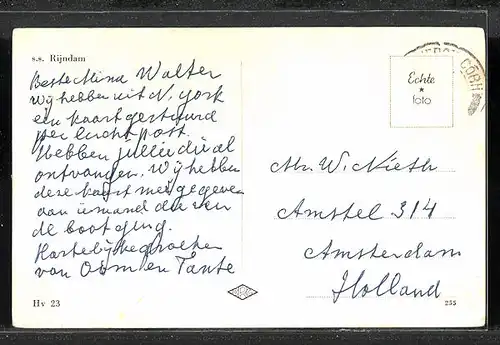 s.s. Rijndam
Beste Mina Walter
Wij hebben uit N. york
een kaart gestuurd
per luchtpost.
Hebben jullie die al
ontvangen. Wij hebben
deze kaart meegegeven
aan iemand die van
de boot ging.
Hartelijke groeten
van Oom en Tante
Hv 23
Echte
foto
Mr. W. Nieth
Amstel 314
Amsterdam
Holland
255